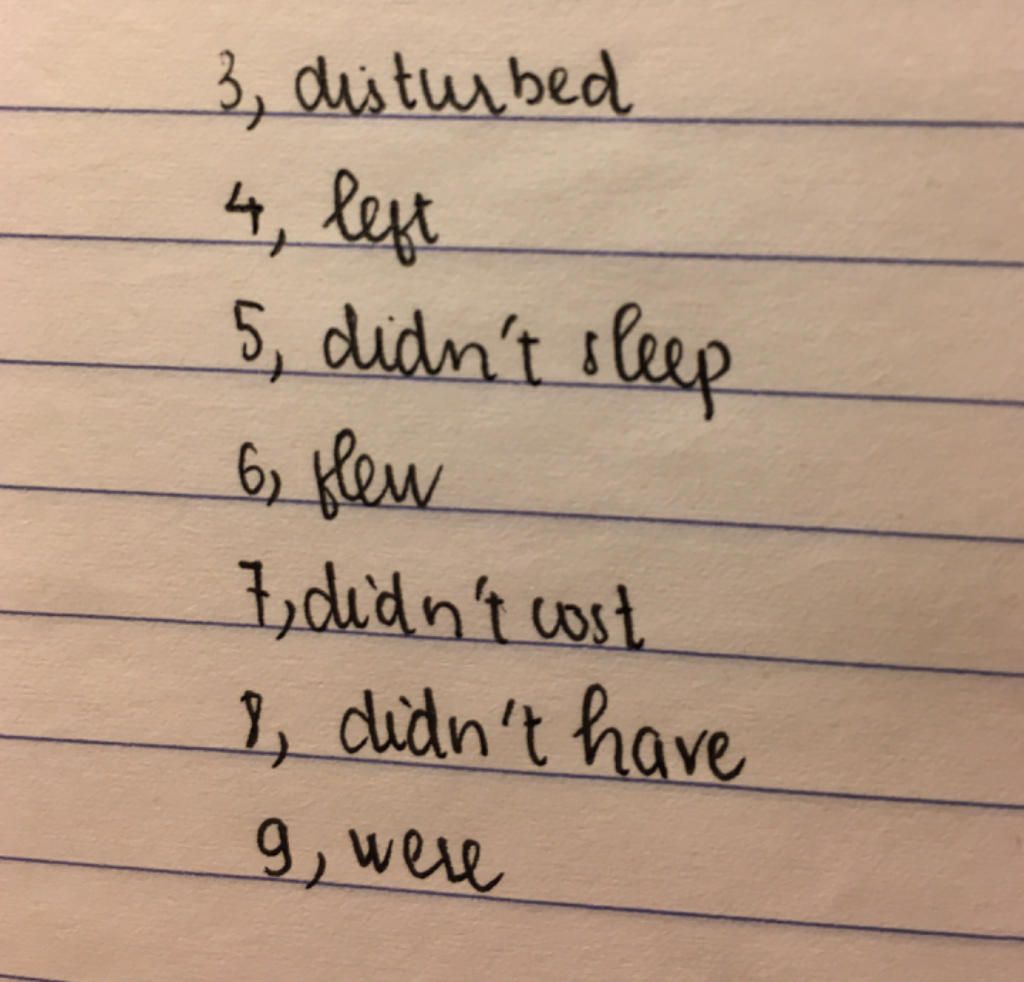 3, disturbed
4, left
5, didn't sleep
6, flew
7, didn't cost
8, didn't have
9, were